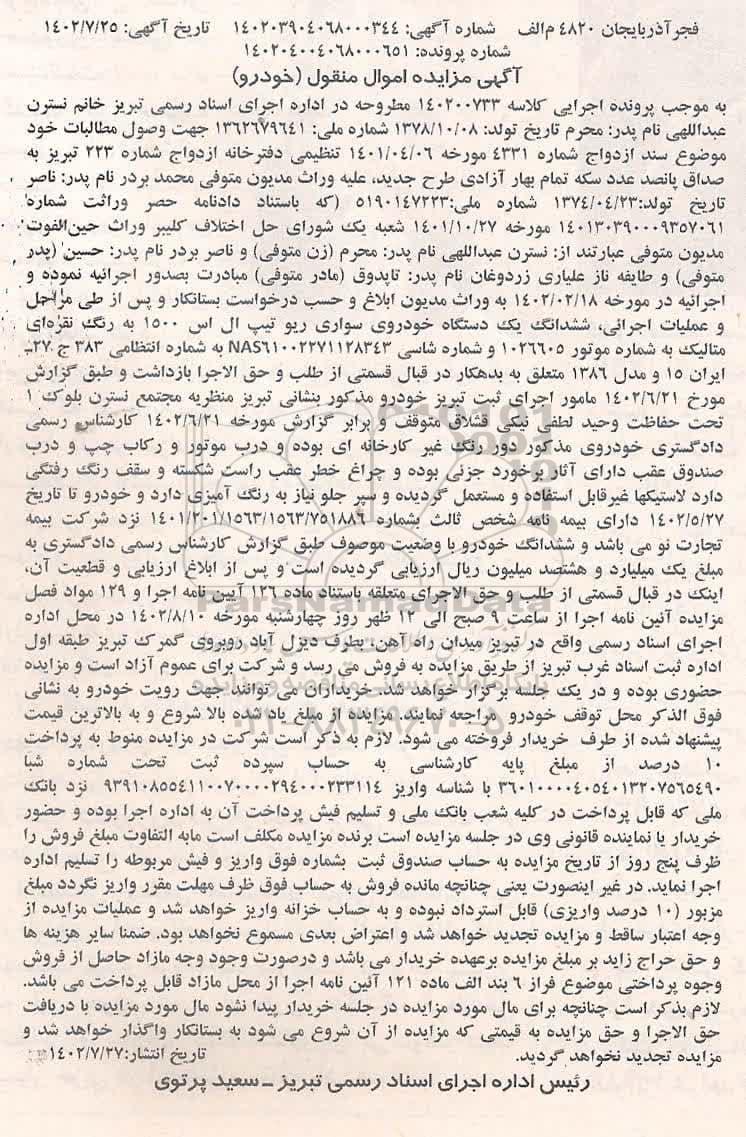 فجر آذربایجان ۴۸۲۰ م الف شماره آگهی: ۱۴۰۲۰۳۹۰۴۰۶۸۰۰۰۳۴۴ تاریخ آگهی: ۱۴۰۲/۷/۲۵
شماره پرونده: ۱۴۰۲۰۴۰۰۴۰۶۸۰۰۰۶۵۱
آگهی مزایده اموال منقول (خودرو)
به موجب پرونده اجرایی کلاسه ۱۴۰۲۰۰۷۳۳ مطروحه در اداره اجرای اسناد رسمی تبریز خانم نسترن
عبداللهی نام پدر: محرم تاریخ تولد: ۱۳۷۸/۱۰/۰۸ شماره ملی: ۱۳۶۲۶۷۹۶۴۱ جهت وصول مطالبات خود
موضوع سند ازدواج شماره ۴۳۳۱ مورخه ۱۴۰۱/۰۴/۰۶ تنظیمی دفترخانه ازدواج شماره ۲۲۳ تبریز به
صداق پانصد عدد سکه تمام بهار آزادی طرح جدید، علیه وراث مدیون متوفی محمد بردر نام پدر: ناصر
تاریخ تولد:۱۳۷۴/۰۴/۲۳ شماره ملی:۵۱۹۰۱۴۷۲۲۳ (که باستناد دادنامه حصر وراثت شماره
۱۴۰۱۳۰۳۹۰۰۰۹۳۵۷۰۶۱ مورخه ۱۴۰۱/۱۰/۲۷ شعبه یک شورای حل اختلاف کلیبر وراث حین الفوت
مدیون متوفی عبارتند از: نسترن عبداللهی نام پدر: محرم (زن متوفی) و ناصر بردر نام پدر: حسین (پدر
متوفی) و طایفه ناز علیاری زردوغان نام پدر: تاپدوق (مادر متوفی) مبادرت بصدور اجرائیه نموده و
اجرائیه در مورخه ۱۴۰۲/۰۲/۱۸ به وراث مدیون ابلاغ و حسب درخواست بستانکار و پس از طی مراحل
و عملیات اجرائی، ششدانگ یک دستگاه خودروی سواری ریو تیپ ال اس ۱۵۰۰ به رنگ نقره‌ای
متالیک به شماره موتور ۱۰۲۶۶۰۵ و شماره شاسی NAS۶۱۰۰۲۲۷۱۱۲۸۳۴۳ به شماره انتظامی ۳۸۳ ج ۲۷ـ
ایران ۱۵ و مدل ۱۳۸۶ متعلق به بدهکار در قبال قسمتی از طلب و حق الاجرا بازداشت و طبق گزارش
مورخ ۱۴۰۲/۶/۲۱ مامور اجرای ثبت تبریز خودرو مذکور بنشانی تبریز منظریه مجتمع نسترن بلوک ۱
تحت حفاظت وحید لطفی نیکی قشلاق متوقف و برابر گزارش مورخه ۱۴۰۲/۶/۲۱ کارشناس رسمی
دادگستری خودروی مذکور دور رنگ غیر کارخانه ای بوده و درب موتور و رکاب چپ و درب
صندوق عقب دارای آثار برخورد جزئی بوده و چراغ خطر عقب راست شکسته و سقف رنگ رفتگی
دارد لاستیکها غیرقابل استفاده و مستعمل گردیده و سپر جلو نیاز به رنگ آمیزی دارد و خودرو تا تاریخ
۱۴۰۲/۵/۲۷ دارای بیمه نامه شخص ثالث بشماره ۱۴۰۱/۲۰۱/۱۵۶۳/۱۵۶۳/۷۵۱۸۸۶ نزد شرکت بیمه
تجارت نو می باشد و ششدانگ خودرو با وضعیت موصوف طبق گزارش کارشناس رسمی دادگستری به
مبلغ یک میلیارد و هشتصد میلیون ریال ارزیابی گردیده است و پس از ابلاغ ارزیابی و قطعیت آن،
اینک در قبال قسمتی از طلب و حق الاجرای متعلقه باستناد ماده ۱۲۶ آیین نامه اجرا و ۱۲۹ مواد فصل
مزایده آئین نامه اجرا از ساعت ۹ صبح الی ۱۲ ظهر روز چهارشنبه مورخه ۱۴۰۲/۸/۱۰ در محل اداره
اجرای اسناد رسمی واقع در تبریز میدان راه آهن، بطرف دیزل آباد روبروی گمرک تبریز طبقه اول
اداره ثبت اسناد غرب تبریز از طریق مزایده به فروش می رسد و شرکت برای عموم آزاد است و مزایده
حضوری بوده و در یک جلسه برگزار خواهد شد. خریداران می توانند جهت رویت خودرو به نشانی
فوق الذکر محل توقف خودرو مراجعه نمایند. مزایده از مبلغ یاد شده بالا شروع و به بالاترین قیمت
پیشنهاد شده از طرف خریدار فروخته می شود. لازم به ذکر است شرکت در مزایده منوط به پرداخت
۱۰ درصد از مبلغ پایه کارشناسی به حساب سپرده ثبت تحت شماره شبا
۳۶۰۱۰۰۰۰۴۰۵۴۰۱۳۲۰۷۵۶۵۴۹۰ با شناسه واریز ۹۳۹۱۰۸۵۵۴۱۱۰۰۷۰۰۰۰۲۹۴۰۰۰۲۳۳۱۱۴ نزد بانک
ملی که قابل پرداخت در کلیه شعب بانک ملی و تسلیم فیش پرداخت آن به اداره اجرا بوده و حضور
خریدار یا نماینده قانونی وی در جلسه مزایده است برنده مزایده مکلف است مابه التفاوت مبلغ فروش را
ظرف پنج روز از تاریخ مزایده به حساب صندوق ثبت بشماره فوق واریز و فیش مربوطه را تسلیم اداره
اجرا نماید. در غیر اینصورت یعنی چنانچه مانده فروش به حساب فوق ظرف مهلت مقرر واریز نگردد مبلغ
مزبور (۱۰ درصد واریزی) قابل استرداد نبوده و به حساب خزانه واریز خواهد شد و عملیات مزایده از
وجه اعتبار ساقط و مزایده تجدید خواهد شد و اعتراض بعدی مسموع نخواهد بود. ضمنا سایر هزینه ها
و حق حراج زاید بر مبلغ مزایده برعهده خریدار می باشد و درصورت وجود وجه مازاد حاصل از فروش
وجوه پرداختی موضوع فراز ۶ بند الف ماده ۱۲۱ آئین نامه اجرا از محل مازاد قابل پرداخت می باشد.
لازم بذکر است چنانچه برای مال مورد مزایده در جلسه خریدار پیدا نشود مال مورد مزایده با دریافت
حق الاجرا و حق مزایده به قیمتی که مزایده از آن شروع می شود به بستانکار واگذار خواهد شد و
مزایده تجدید نخواهد گردید. تاریخ انتشار:۱۴۰۲/۷/۲۷
رئیس اداره اجرای اسناد رسمی تبریز ـ سعید پرتوی
ParsNamadData